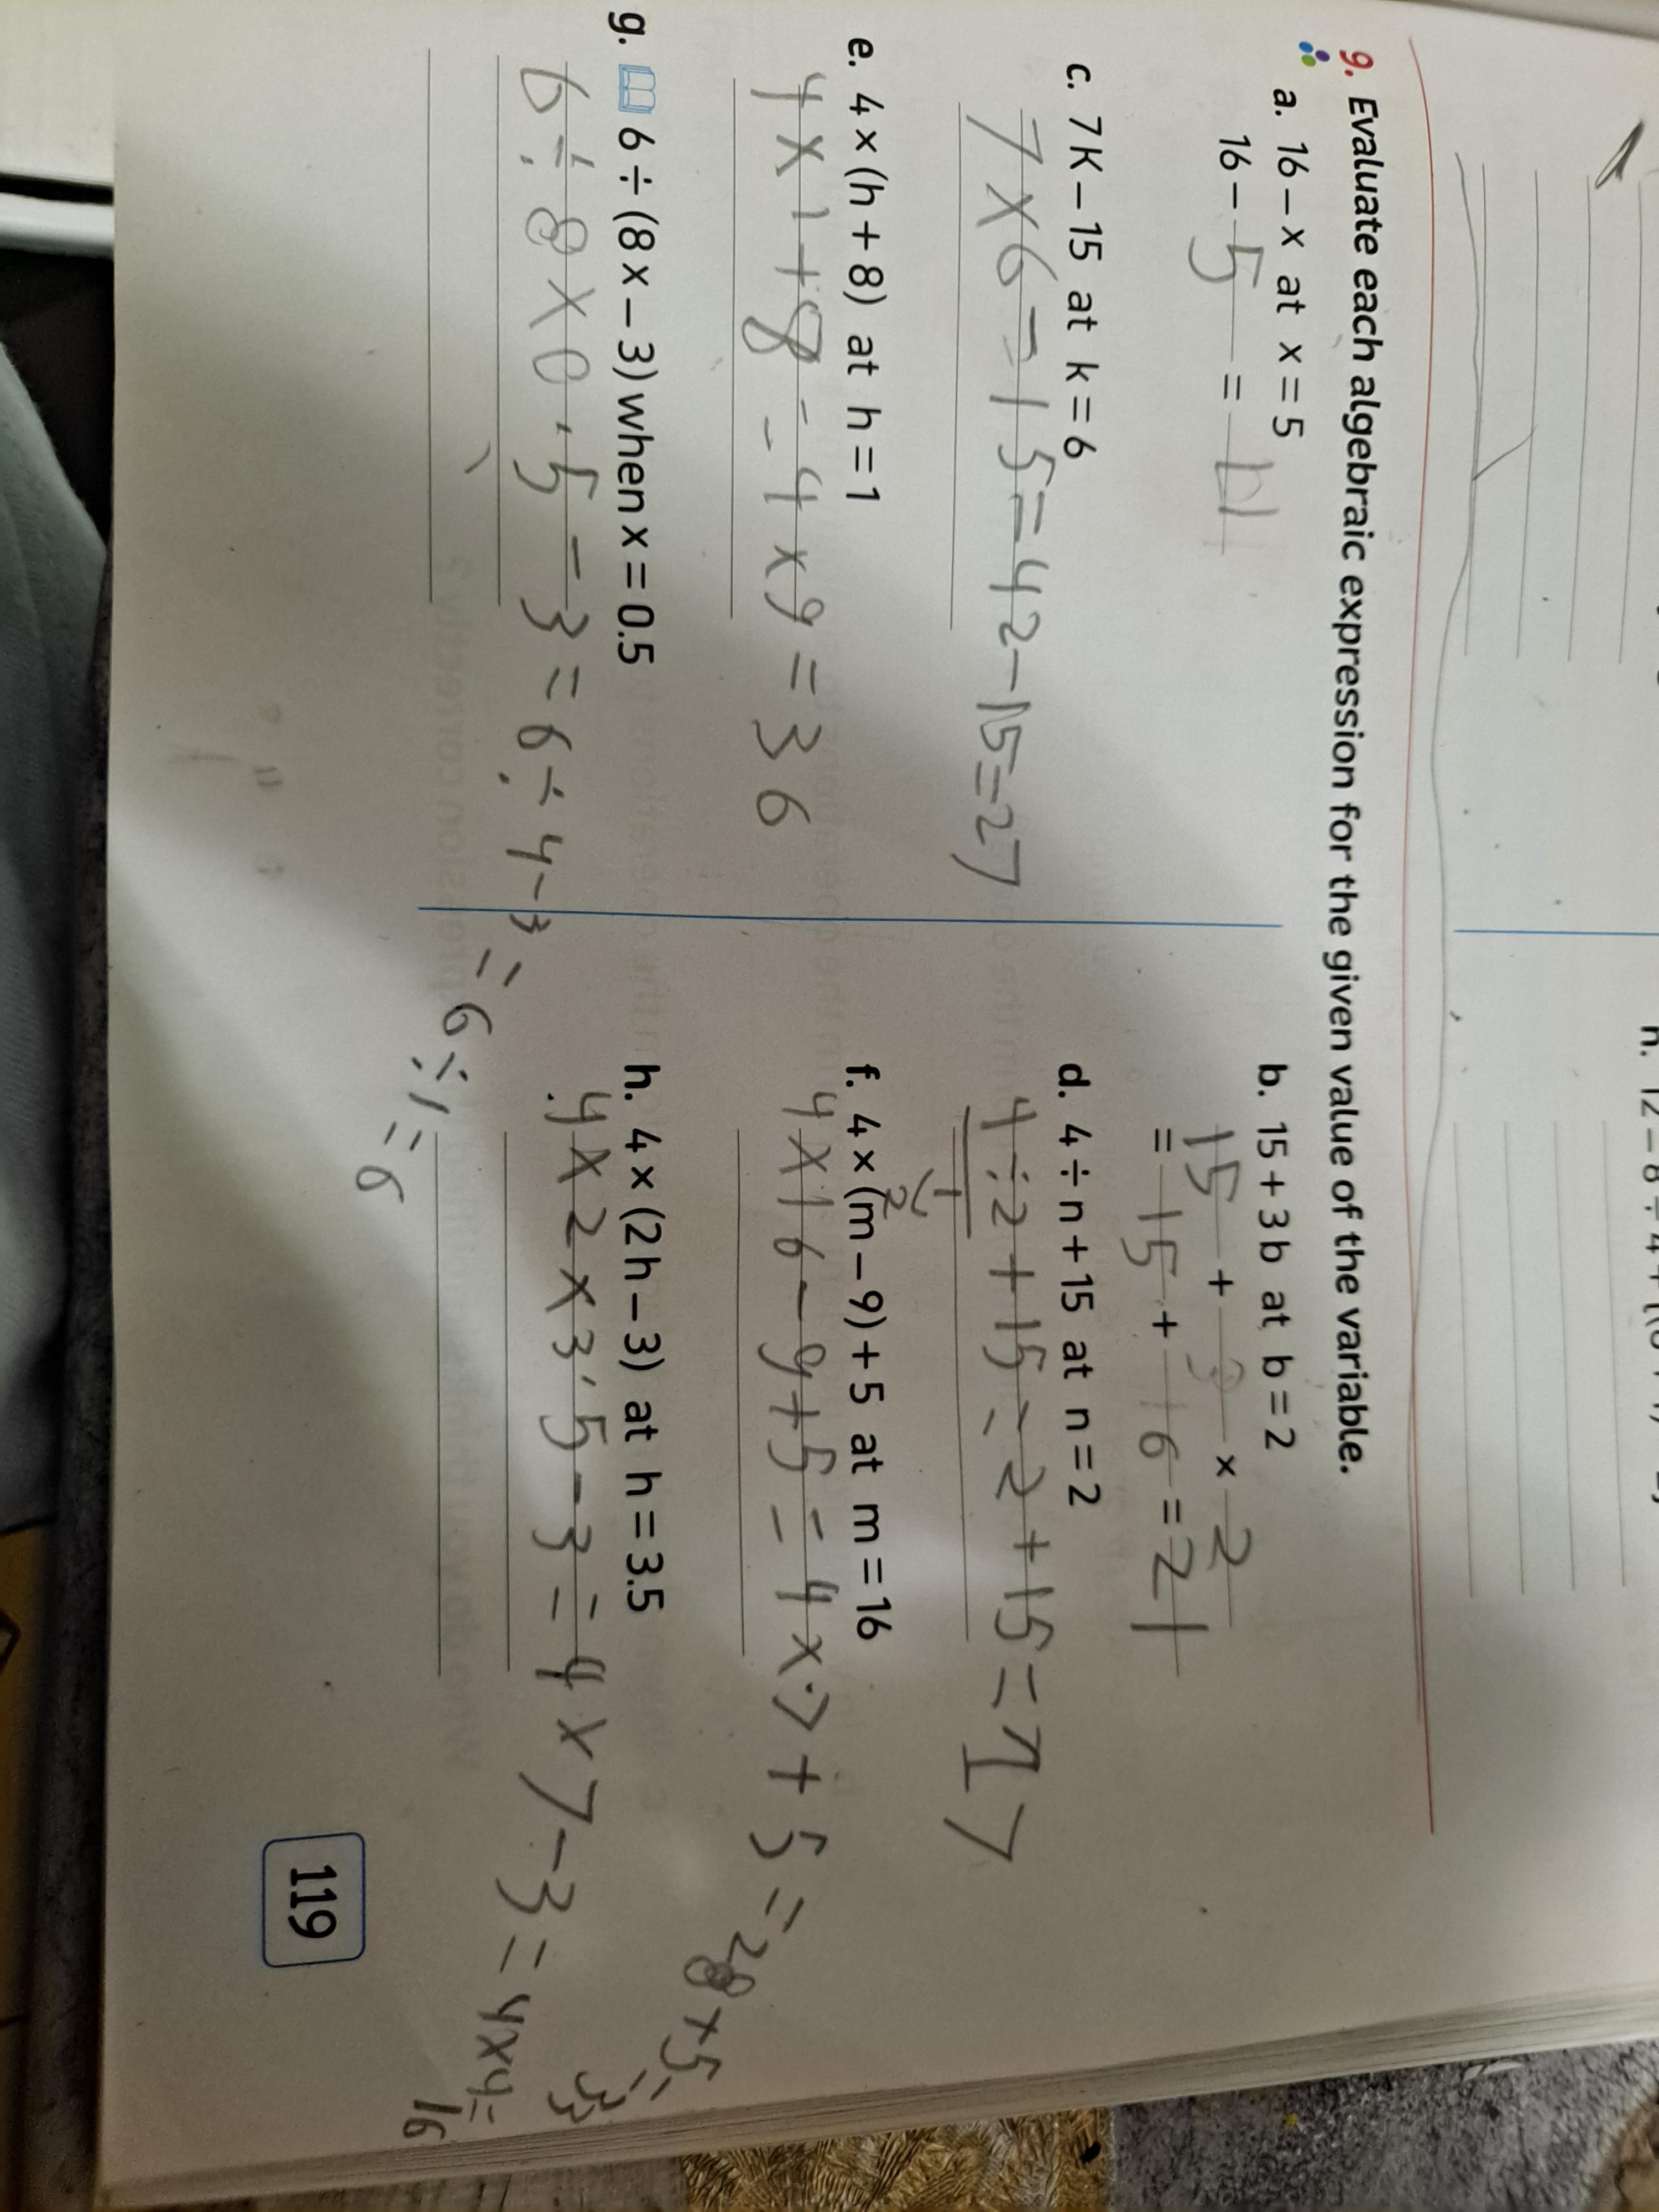 h. 12 – 8 ÷ 4 +
9. Evaluate each algebraic expression for the given value of the variable.
a. 16 – x at x = 5
16 – 5 = 11
b. 15 + 3b at b = 2
15 + 3 × 2
= 15 + 6 = 21
c. 7K – 15 at k = 6
7 × 6 – 15 = 42 – 15 = 27
d. 4 ÷ n + 15 at n = 2
4 ÷ 2 + 15 = 2 + 15 = 17
e. 4 × (h + 8) at h = 1
4 × 1 + 8 = 4 × 9 = 36
f. 4 × (m – 9) + 5 at m = 16
4 × 16 – 9 + 5 = 4 × 7 + 5 = 28 + 5 = 33
g. 6 ÷ (8 x – 3) when x = 0.5
6 ÷ 8 × 0.5 – 3 = 6 ÷ 4 – 3 = 6 ÷ 1 = 6
h. 4 × (2h – 3) at h = 3.5
4 × 2 × 3,5 – 3 = 4 × 7 – 3 = 4 × 4 = 16
119